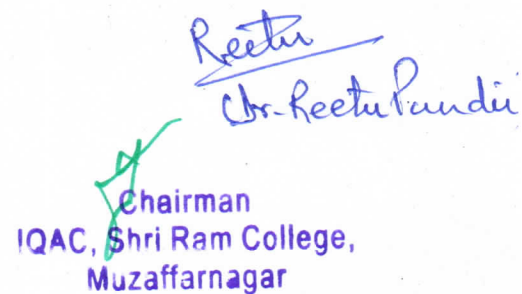 Reetu
Dr. Reetu Pundir
Chairman
IQAC, Shri Ram College,
Muzaffarnagar